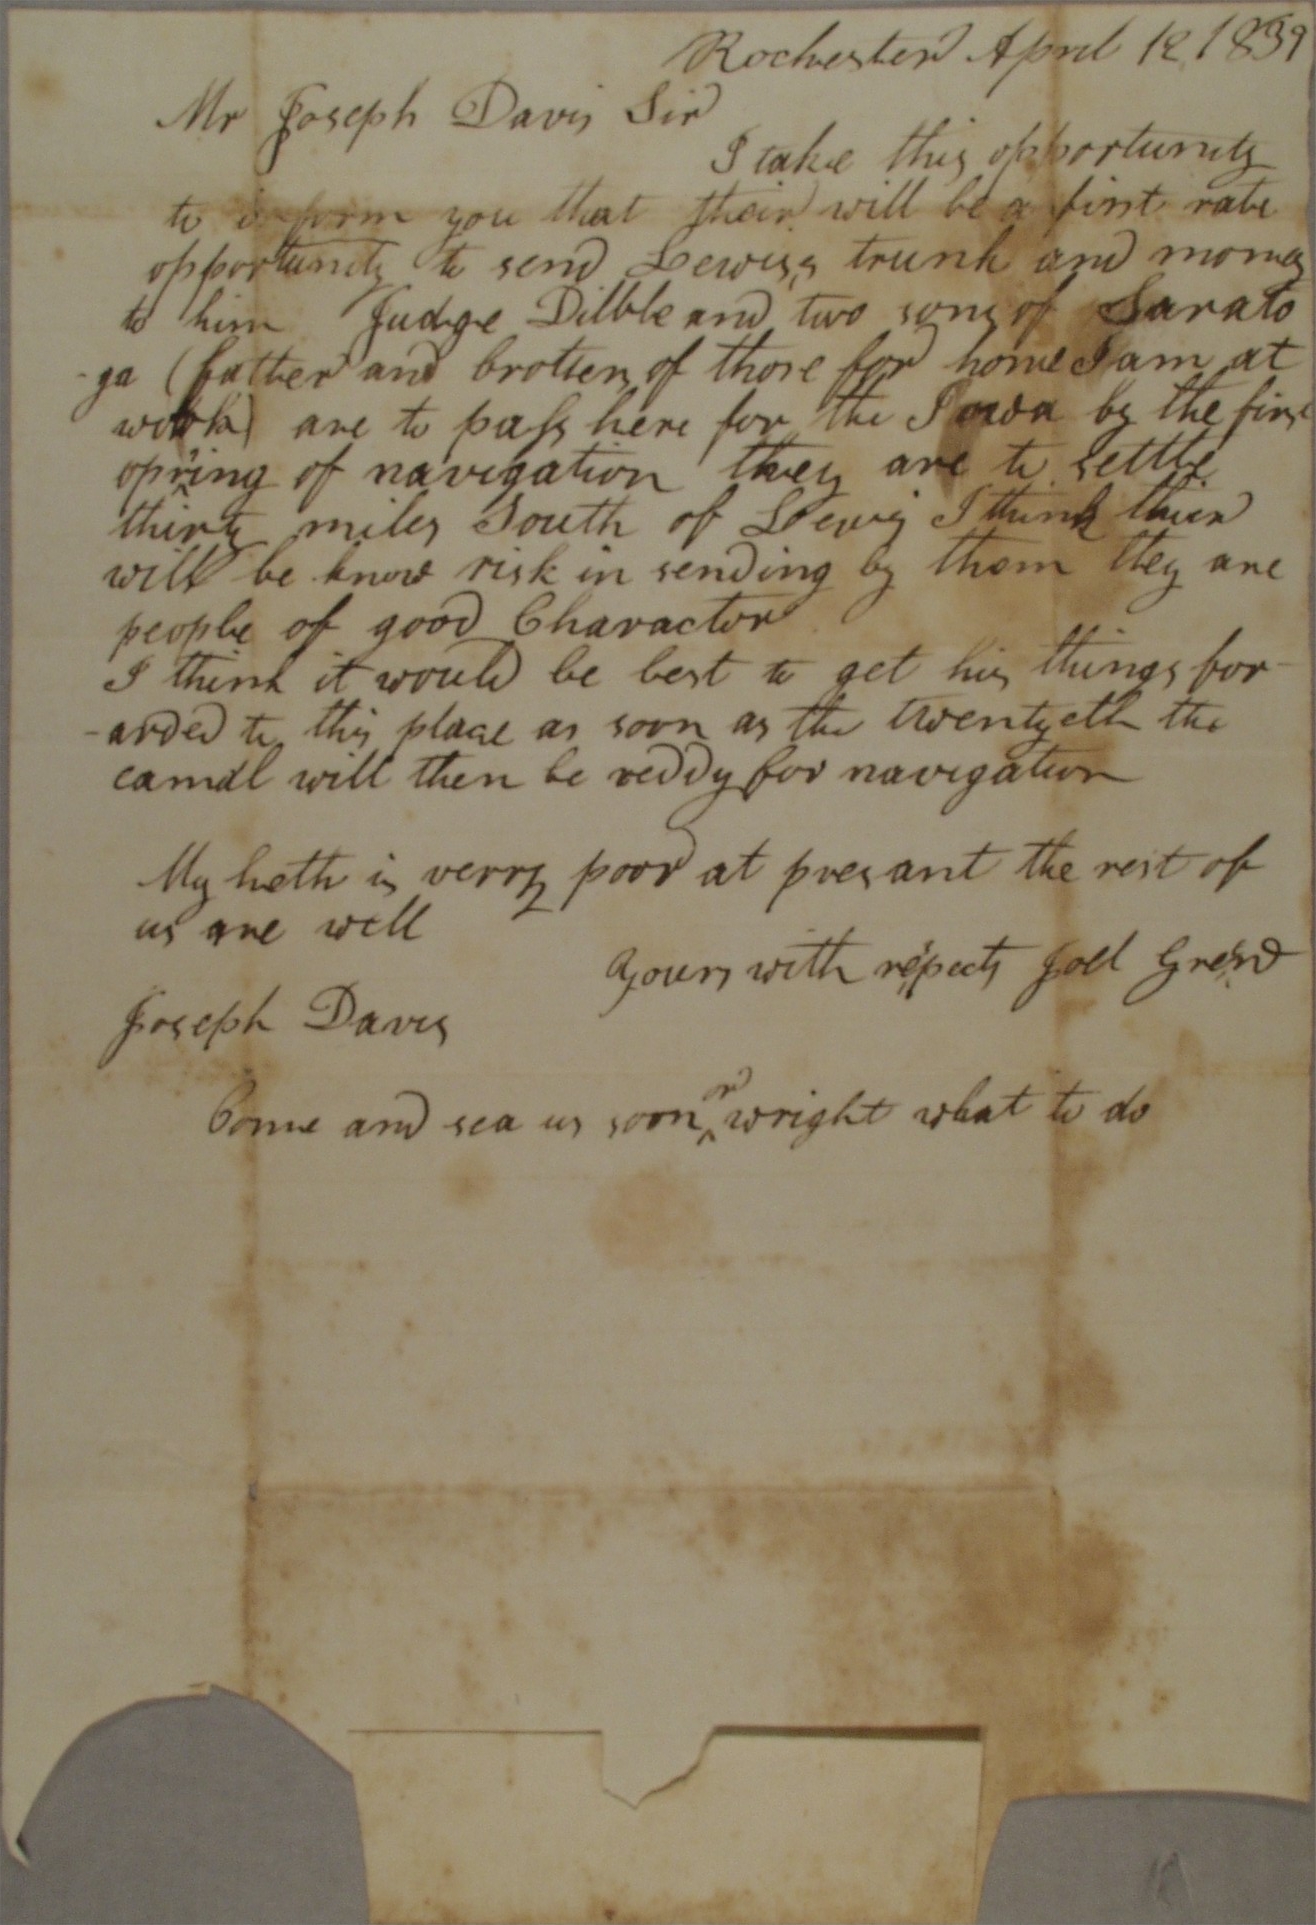 Rochester April 12 1839
Mr Joseph Davis Sir
I take this opportunity
to inform you that their will be a first rate
opportunity to send Lewiss trunk and money
to him Judge Dibble and two sons of Sarato
-ga (father and brothers of those for home I am at
work) are to pass here for the Iowa by the first
opning of navigation they are to settle
thirty miles South of Lewis I think thier
will be know risk in sending by them they are
people of good Charactor
I think it would be best to get his things for-
-arded to this place as soon as the twentyeth the
canal will then be reddy for navigation
My helth is verry poor at presant the rest of
us are well
Yours with respects Joel Green
Joseph Davis
Come and sea us soon or wright what to do